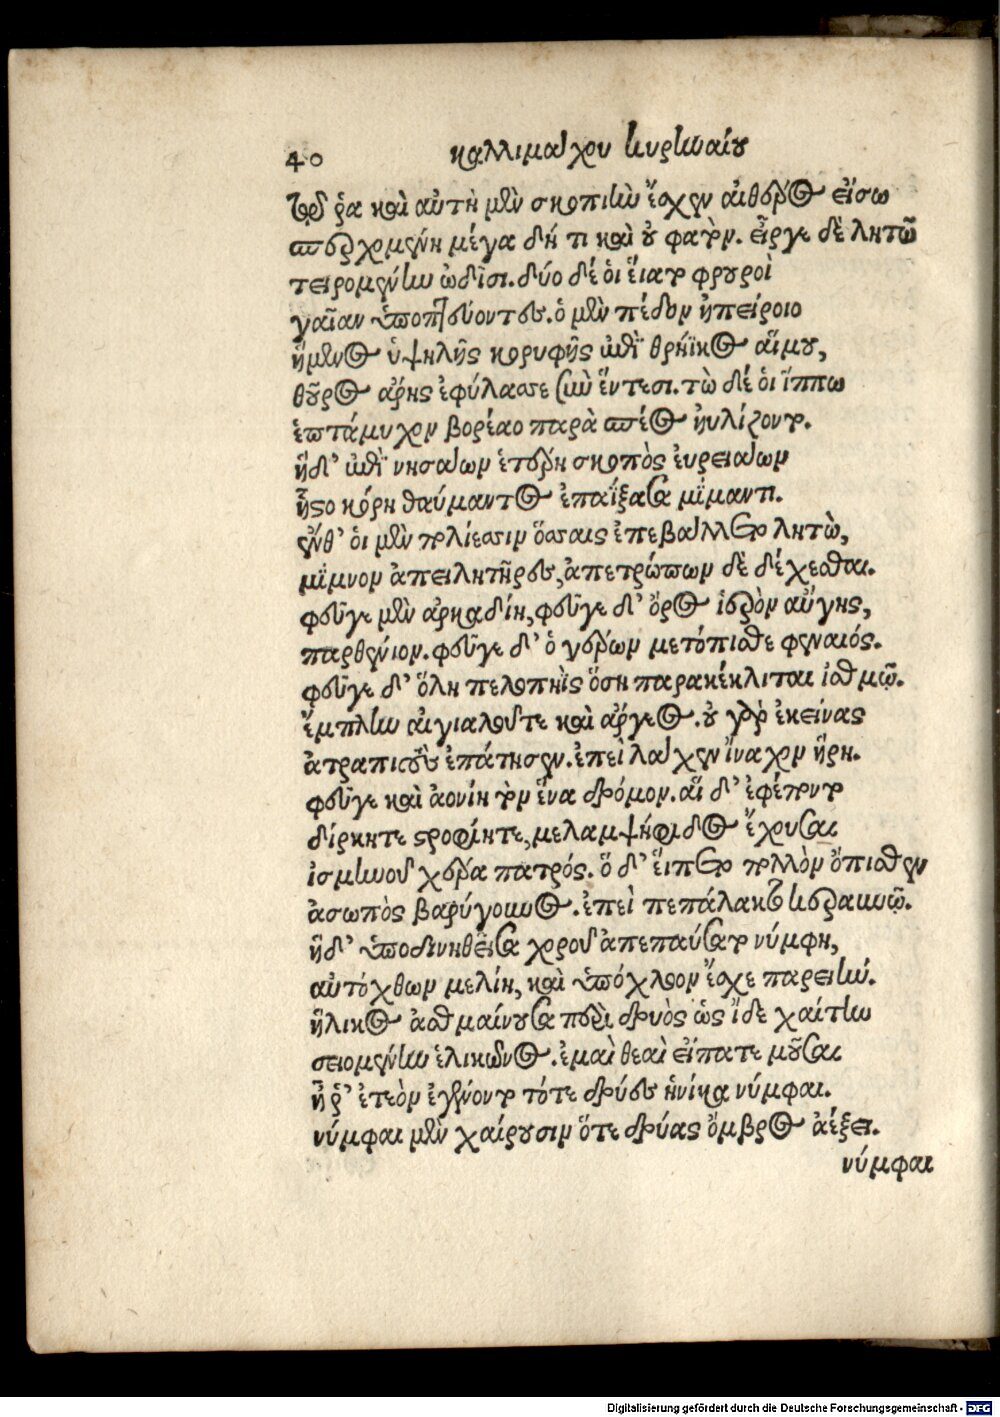 40 καλλιμάχου κυρηναίου
τῷ ῥα καὶ αὐτὴ μὲν σκοπιὴν ἔχεν αἰθέρος εἴσω
σπερχομένη μέγα δή τι καὶ οὐ φατόν. εἶργε δὲ λητὼ
τειρομένην ὠδῖσι. δύο δέ οἱ εἵατο φρουροὶ
γαῖαν ἐποπτεύοντες. ὁ μὲν πέδον ἠπείροιο
ἥμενος ὑψηλῆς κορυφῆς ἐπὶ θρήϊκος αἵμου,
θοῦρος ἄρης ἐφύλασσε σὺν ἔντεσι. τὼ δέ οἱ ἵππω
ἑπτάμυχον βορέαο παρὰ σπέος ηὐλίζοντο.
ἡ δ' ἐπὶ νησάων ἑτέρη σκοπὸς εὐρειάων
ἧστο κόρη θαύμαντος ἐπαΐξασα μίμαντι.
ἔνθ' οἱ μὲν πολίεσσιν ὅσσαις ἐπεβάλλετο λητὼ,
μίμνον ἀπειλητῆρες, ἀπετρώπων δὲ δέχεσθαι.
φεῦγε μὲν ἀρκαδίη, φεῦγε δ' ὄρος ἱερὸν αὔγης,
παρθένιον. φεῦγε δ' ὁ γέρων μετόπισθε φεναιός.
φεῦγε δ' ὅλη πελοπηῒς ὅση παρακέκλιται ἰσθμῷ.
ἔμπλην αἰγιαλοῦ τε καὶ ἄργεος. οὐ γὰρ ἐκείνας
ἀτραπιτοὺς ἐπάτησεν. ἐπεὶ λάχεν ἴναχον ἥρη.
φεῦγε καὶ ἀονίη τὸν ἕνα δρόμον. αἱ δ' ἐφέποντο
δίρκη τε στροφίη τε, μελαμψήφιδος ἔχουσαι
ἰσμηνοῦ χέρα πατρός. ὁ δ' εἵπετο πολλὸν ὄπισθεν
ἀσωπὸς βαρύγουνος. ἐπεὶ πεπάλακτο κεραυνῷ.
ἡ δ' ὑποδινηθεῖσα χοροῦ ἀπεπαύσατο νύμφη,
αὐτόχθων μελίη, καὶ ὑπόχλοον ἔσχε παρειήν.
ἥλικος ἀσθμαίνουσα περὶ δρυὸς ὡς ἴδε χαίτην
σειομένην ἑλικῶνος. ἐμαὶ θεαὶ εἴπατε μοῦσαι
ἦ ῥ' ἐτεὸν ἐγένοντο τότε δρύες ἡνίκα νύμφαι.
νύμφαι μὲν χαίρουσιν ὅτε δρύας ὄμβρος ἀέξει.
νύμφαι
Digitalisierung gefördert durch die Deutsche Forschungsgemeinschaft - DFG